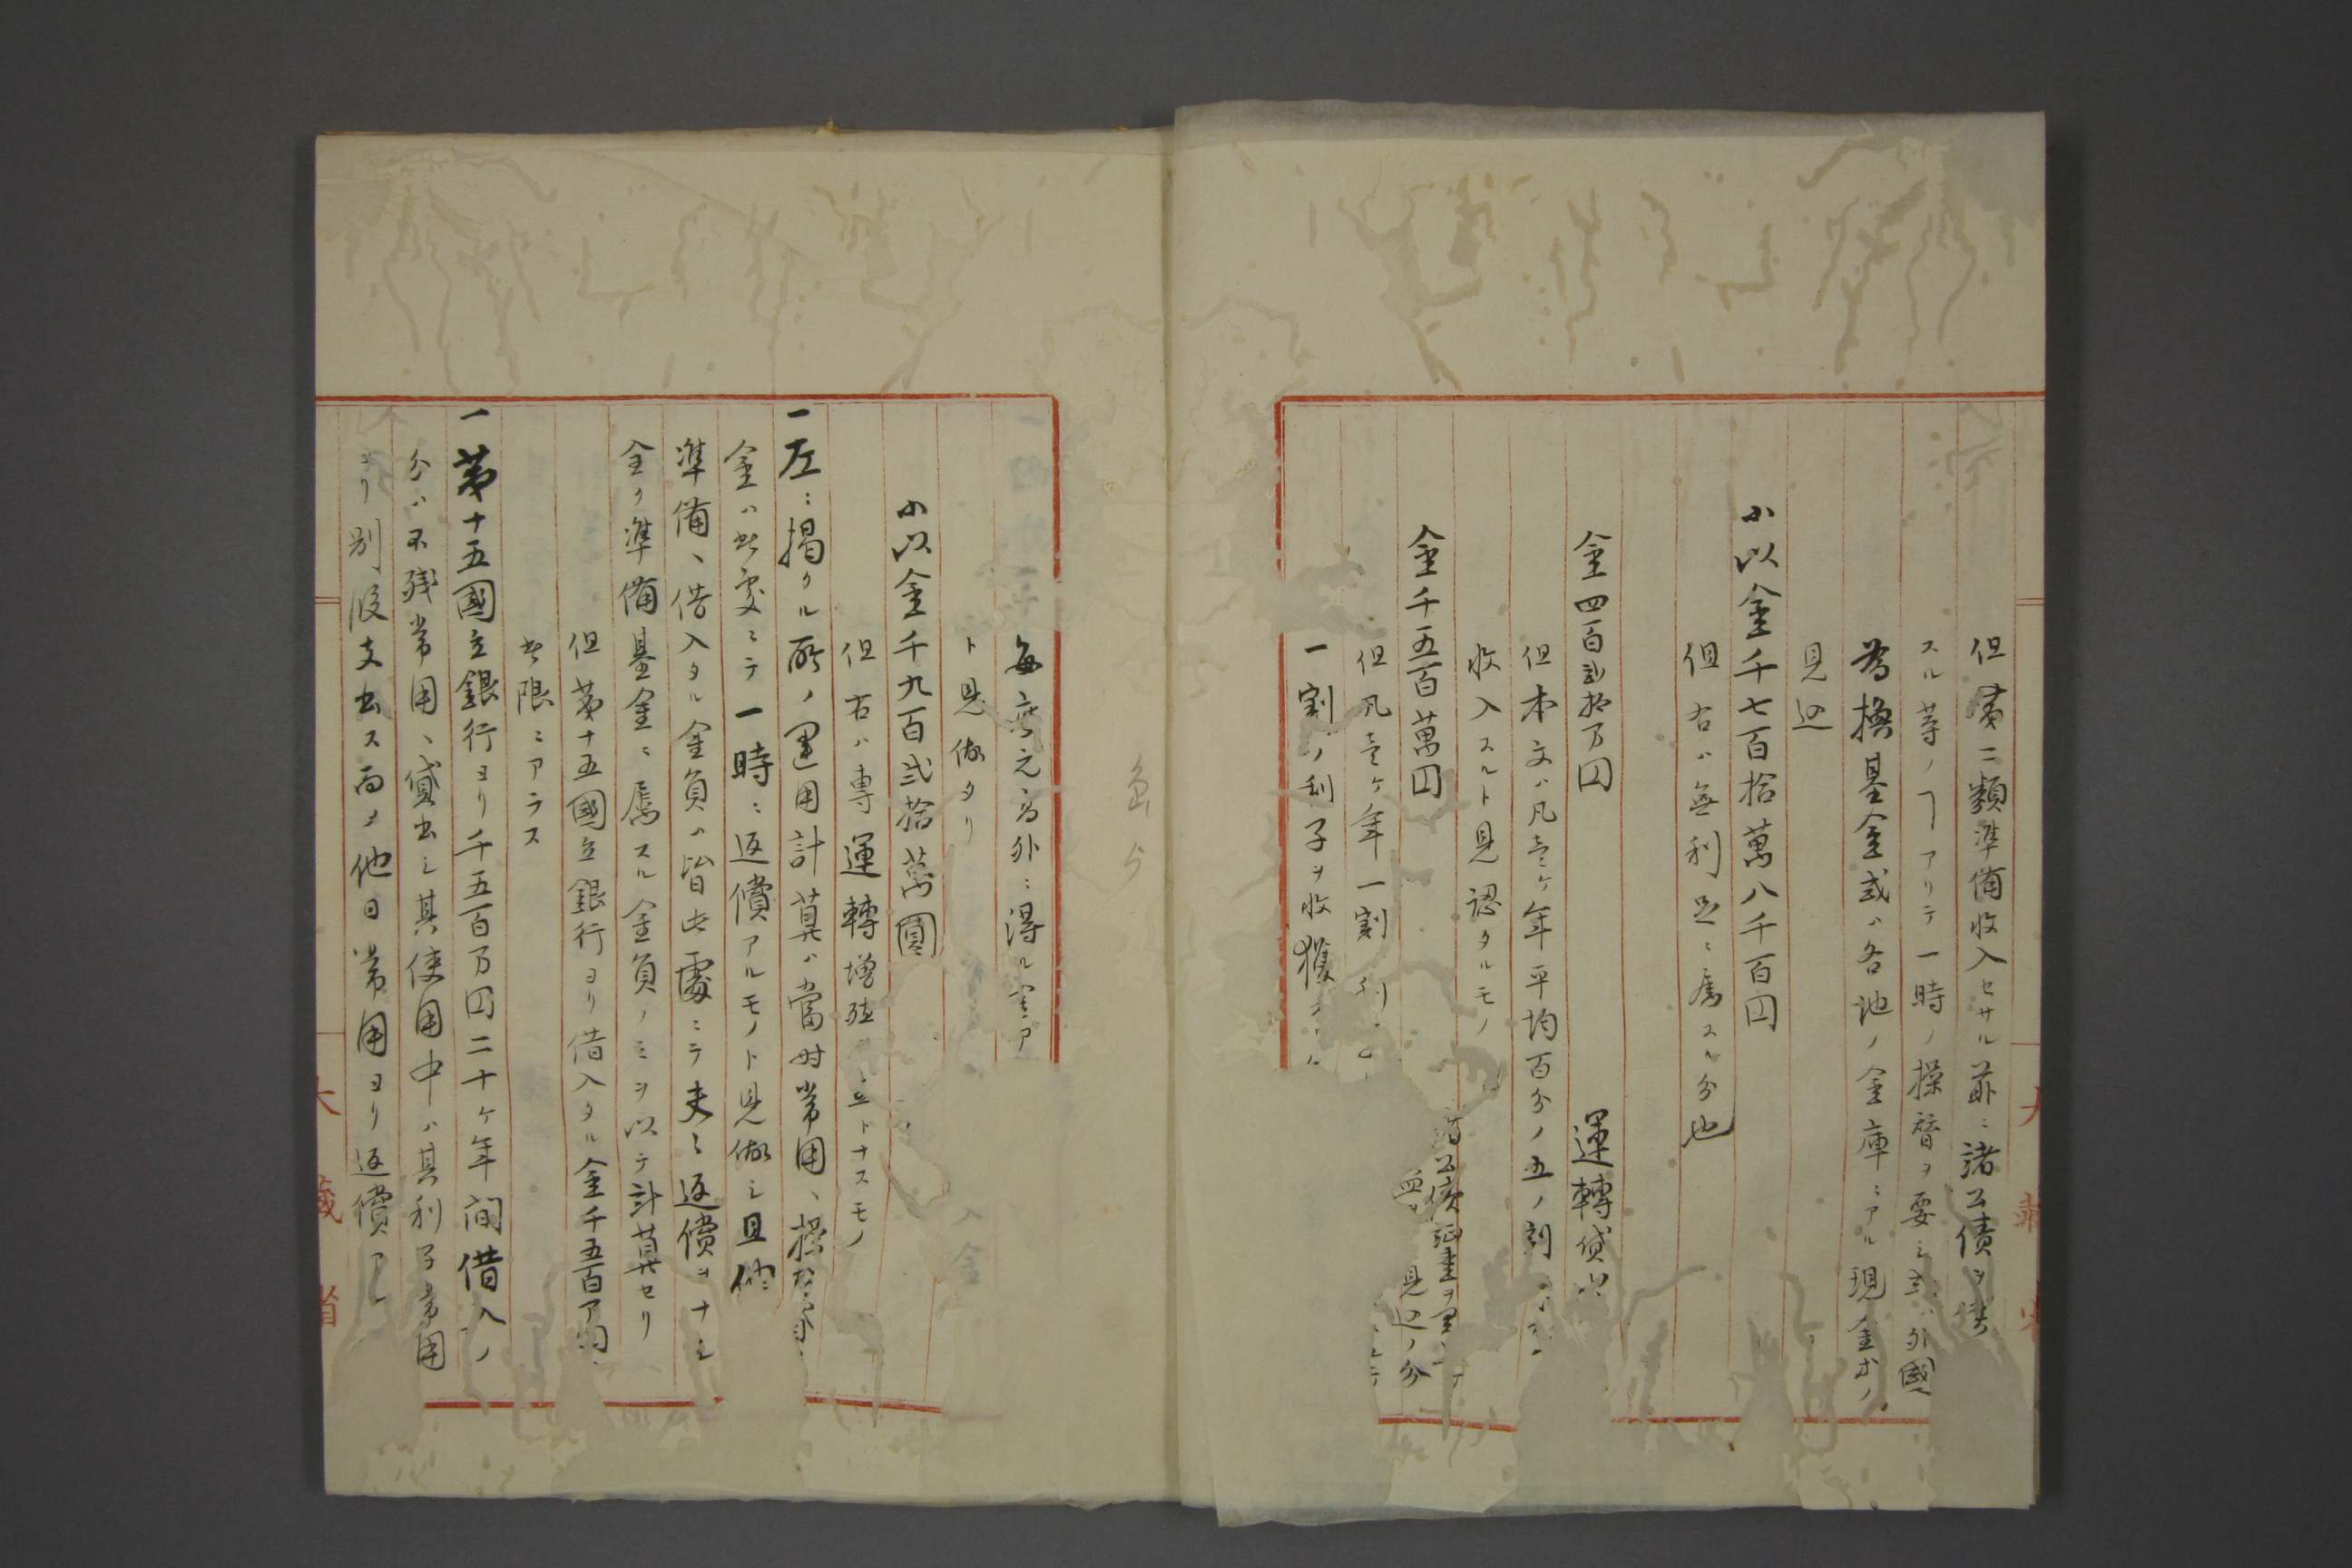 但第二類準備收入セサル前ニ諸公債ヲ
スル等ノヿアリテ一時ノ操替ヲ要シ或ハ外國
為換基金或ハ各地ノ金庫ニアル現金等ノ
見込
小以金千七百拾萬八千百円
但右ハ無利足ニ属スル分也
金四百貳拾万円 運轉貸
但本文ハ凡壱ヶ年平均百分ノ五ノ利
收入スルト見認タルモノ
金千五百萬円 公債証書ヲ 見込ノ分
但凡壱ヶ年一割
一割ノ利子ヲ收獲
毎歳元高外ニ得ル
ト見做タリ
小以金千九百貳拾萬圓
但右ハ専運轉増殖 トナスモノ
一左ニ掲クル所ノ運用計算ハ當時常用ヽ操
金ハ此處ニテ一時ニ返償アルモノト見做シ且他
準備ヽ借入タル金員ハ皆此處ニテ夫々返償ヲナシ
全ク準備基金ニ属スル金員ノミヲ以テ計算セリ
但第十五國立銀行ヨリ借入タル金千五百万円
此限ニアラス
一第十五國立銀行ヨリ千五百万円二十ヶ年間借入ノ
分ハ不残常用ヽ貸出シ其使用中ハ其利子常用
ヨリ別段支出ス而シ他日常用ヨリ返償ア
大藏省